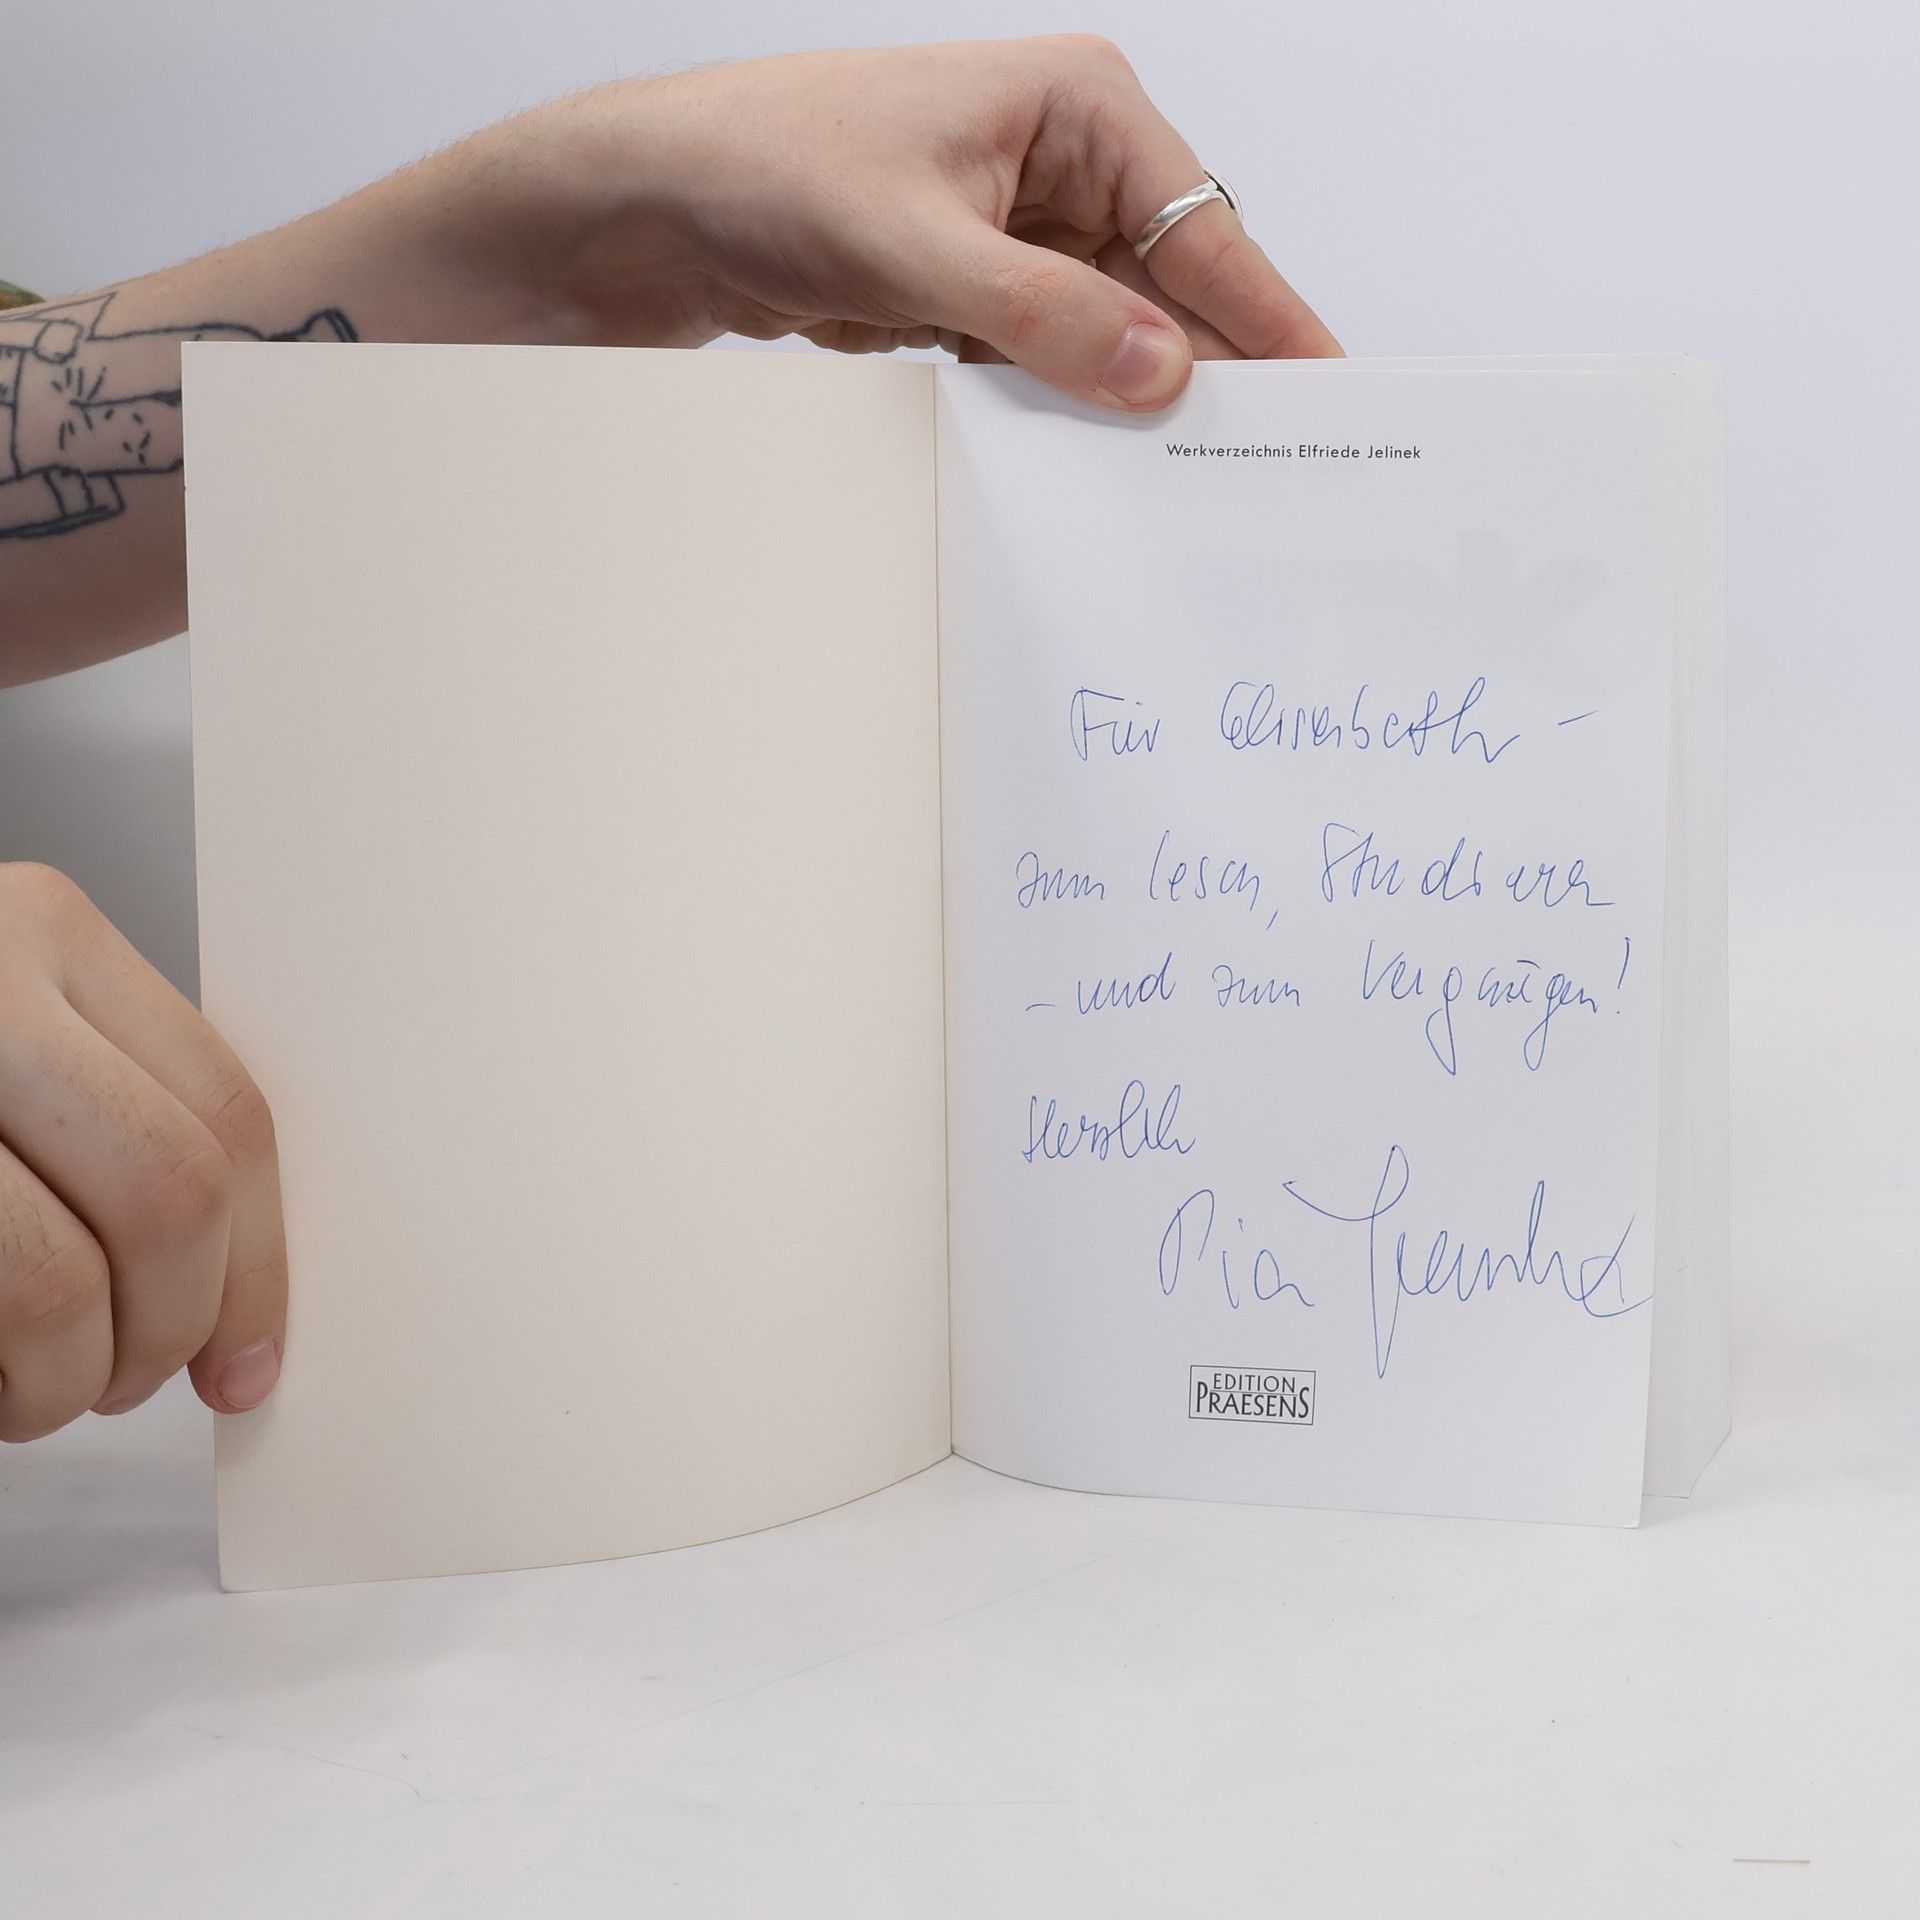 Werkverzeichnis Elfriede Jelinek
Für Elisabeth –
zum Lesen, Studieren
– und zum Vergnügen!
Herzlich
Pia Janke
EDITION
PRAESENS